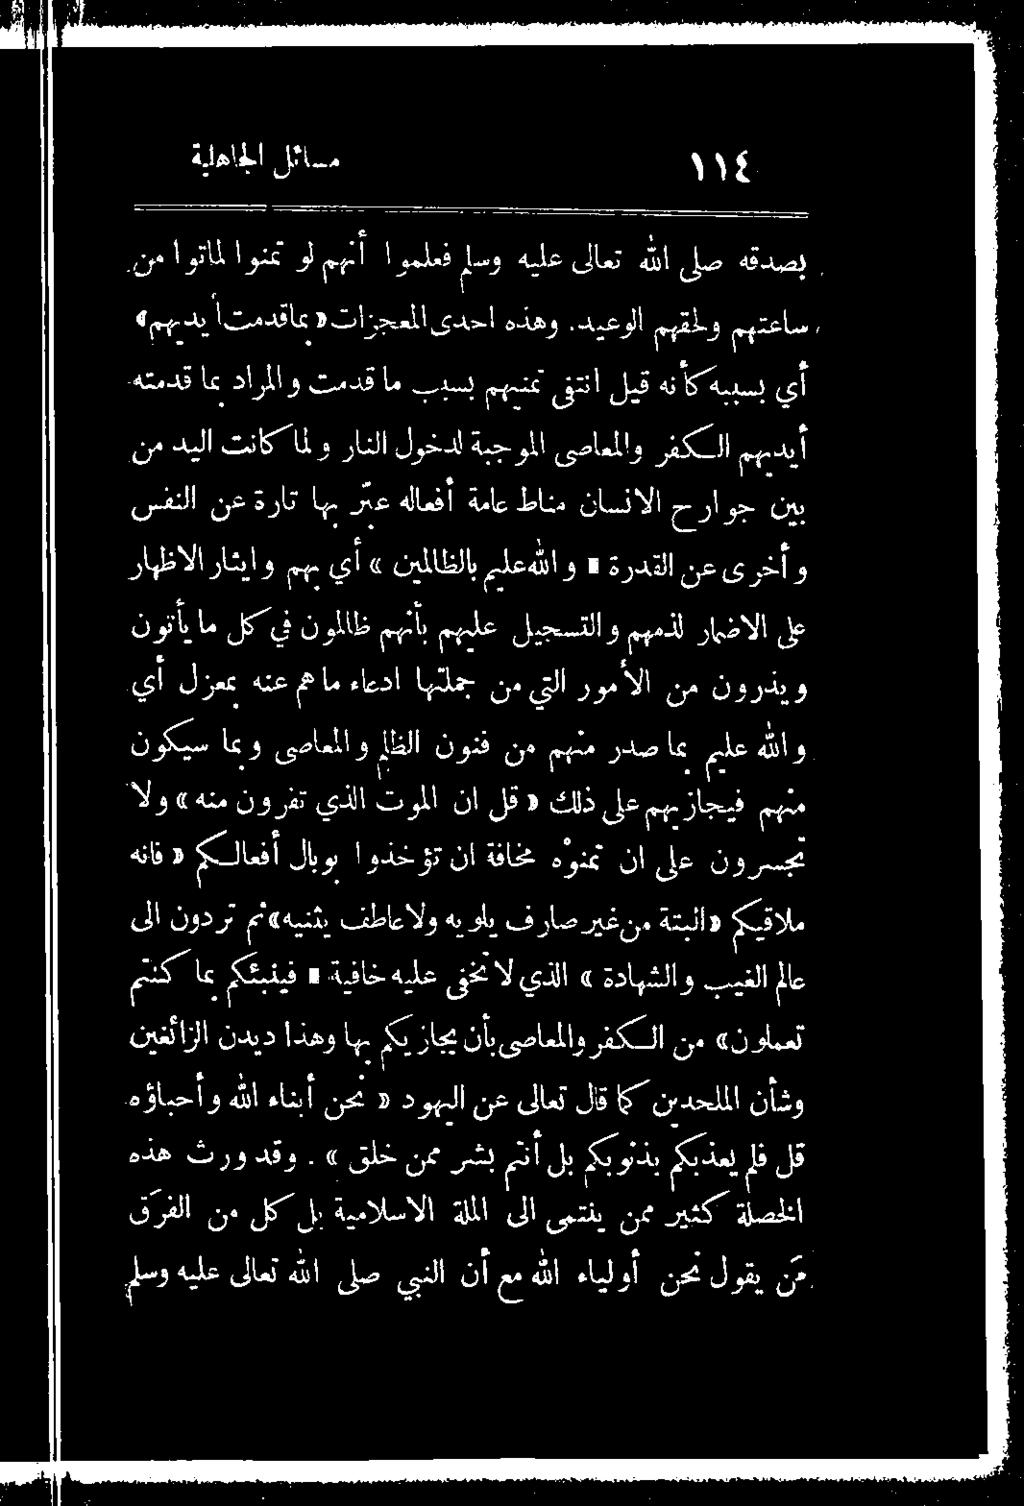 ١١٤ مسائل الجاهلية
بصدقه صلى الله تعالى عليه وسلم فعلموا أنهم لو تمنوا لماتوا من
ساعتهم ولحقهم الوعيد. وهذه احدى المعجزات «بماقدمت أيديهم»
أي بسببه كأنه قيل انتفى تمنيهم بسبب ما قدمت والمراد بما قدمته
أيديهم الكفر والمعاصى الموجبة لدخول النار ولما كانت اليد من
بين جوارح الانسان مناط عامة أفعاله عبّر بها تارة عن النفس
وأخرى عن القدرة « والله عليم بالظالمين » أي بهم وايثار الاظهار
على الاضمار لذمهم والتسجيل عليهم بأنهم ظالمون في كل ما يأتون
ويذرون من الأمور التي من جملتها ادعاء ماهم عنه بمعزل أي
والله عليم بما صدر منهم من فنون الظلم والمعاصى وبما سيكون
منهم فيجازيهم على ذلك « قل ان الموت الذي تفرون منه » ولا
تجسرون على ان تمنوْه مخافة ان تؤخذوا بوبال أفعالكم « فانه
ملاقيكم » البتة من غير صارف يلويه ولا عاطف يثنيه «ثم تردون الى
عالم الغيب والشهادة » الذي لا تخفى عليه خافية « فينبئكم بما كنتم
تعملون» من الكفر والمعاصى بأن يجازيكم بها وهذا ديدن الزائغين
وشأن الملحدين كما قال تعالى عن اليهود « نحن أبناء الله وأحباؤه
قل فلم يعذبكم بذنوبكم بل أنتم بشر ممن خلق » . وقد ورث هذه
الخصلة كثير ممن ينتمى الى الملة الاسلامية بل كل من الفرَق
مَن يقول نحن أولياء الله مع أن النبي صلى الله تعالى عليه وسلم